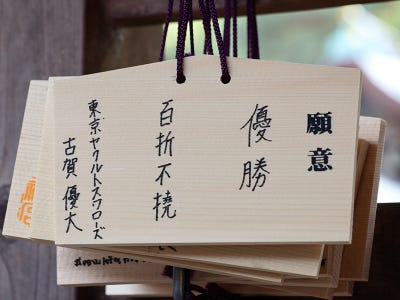 願意
優勝
百折不撓
東京ヤクルトスワローズ
古賀優大